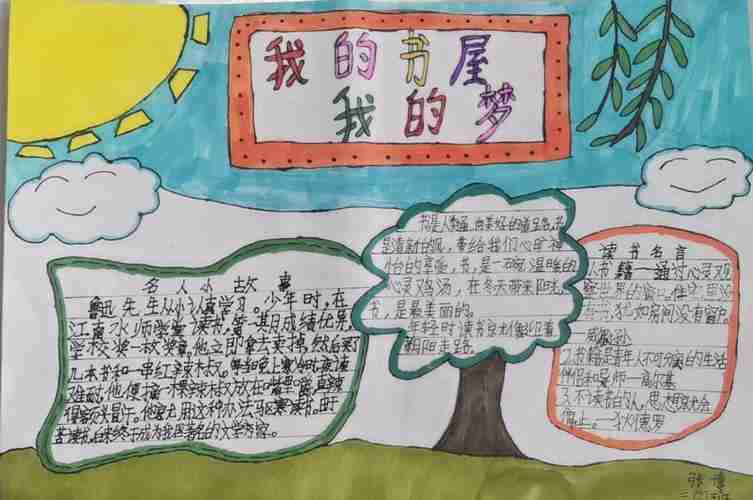 我的书屋
我的梦
名人小故事
鲁迅先生从小认真学习。少年时,在
江南水师学堂读书,第一学期成绩优异,
学校奖一枚奖章。他立即拿去卖掉,然后买了
几本书和一串红辣椒。每当晚上寒冷时,夜读
难耐,他便摘一颗辣椒放在嘴里嚼,直辣
得额头冒汗。他就用这种办法坚持读书。由于
苦读书,后来终于成为我国著名的文学家。
书是人类通向美好的
是清新的风,带给我们心旷神
怡的享受,书,是一碗温暖的
心灵鸡汤,在冬天带来阳光,
书,是最美丽的。
年轻时读书良也像迎着
朝阳走路。
读书名言
书籍——通过心灵观
察世界的窗口。住宅里没
有书,犹如房间没有窗户。
威尔逊
2.书籍是青年人不可分离的生活
伴侣和导师——高尔基
3.不读书的人,思想就会
停止。——狄德罗